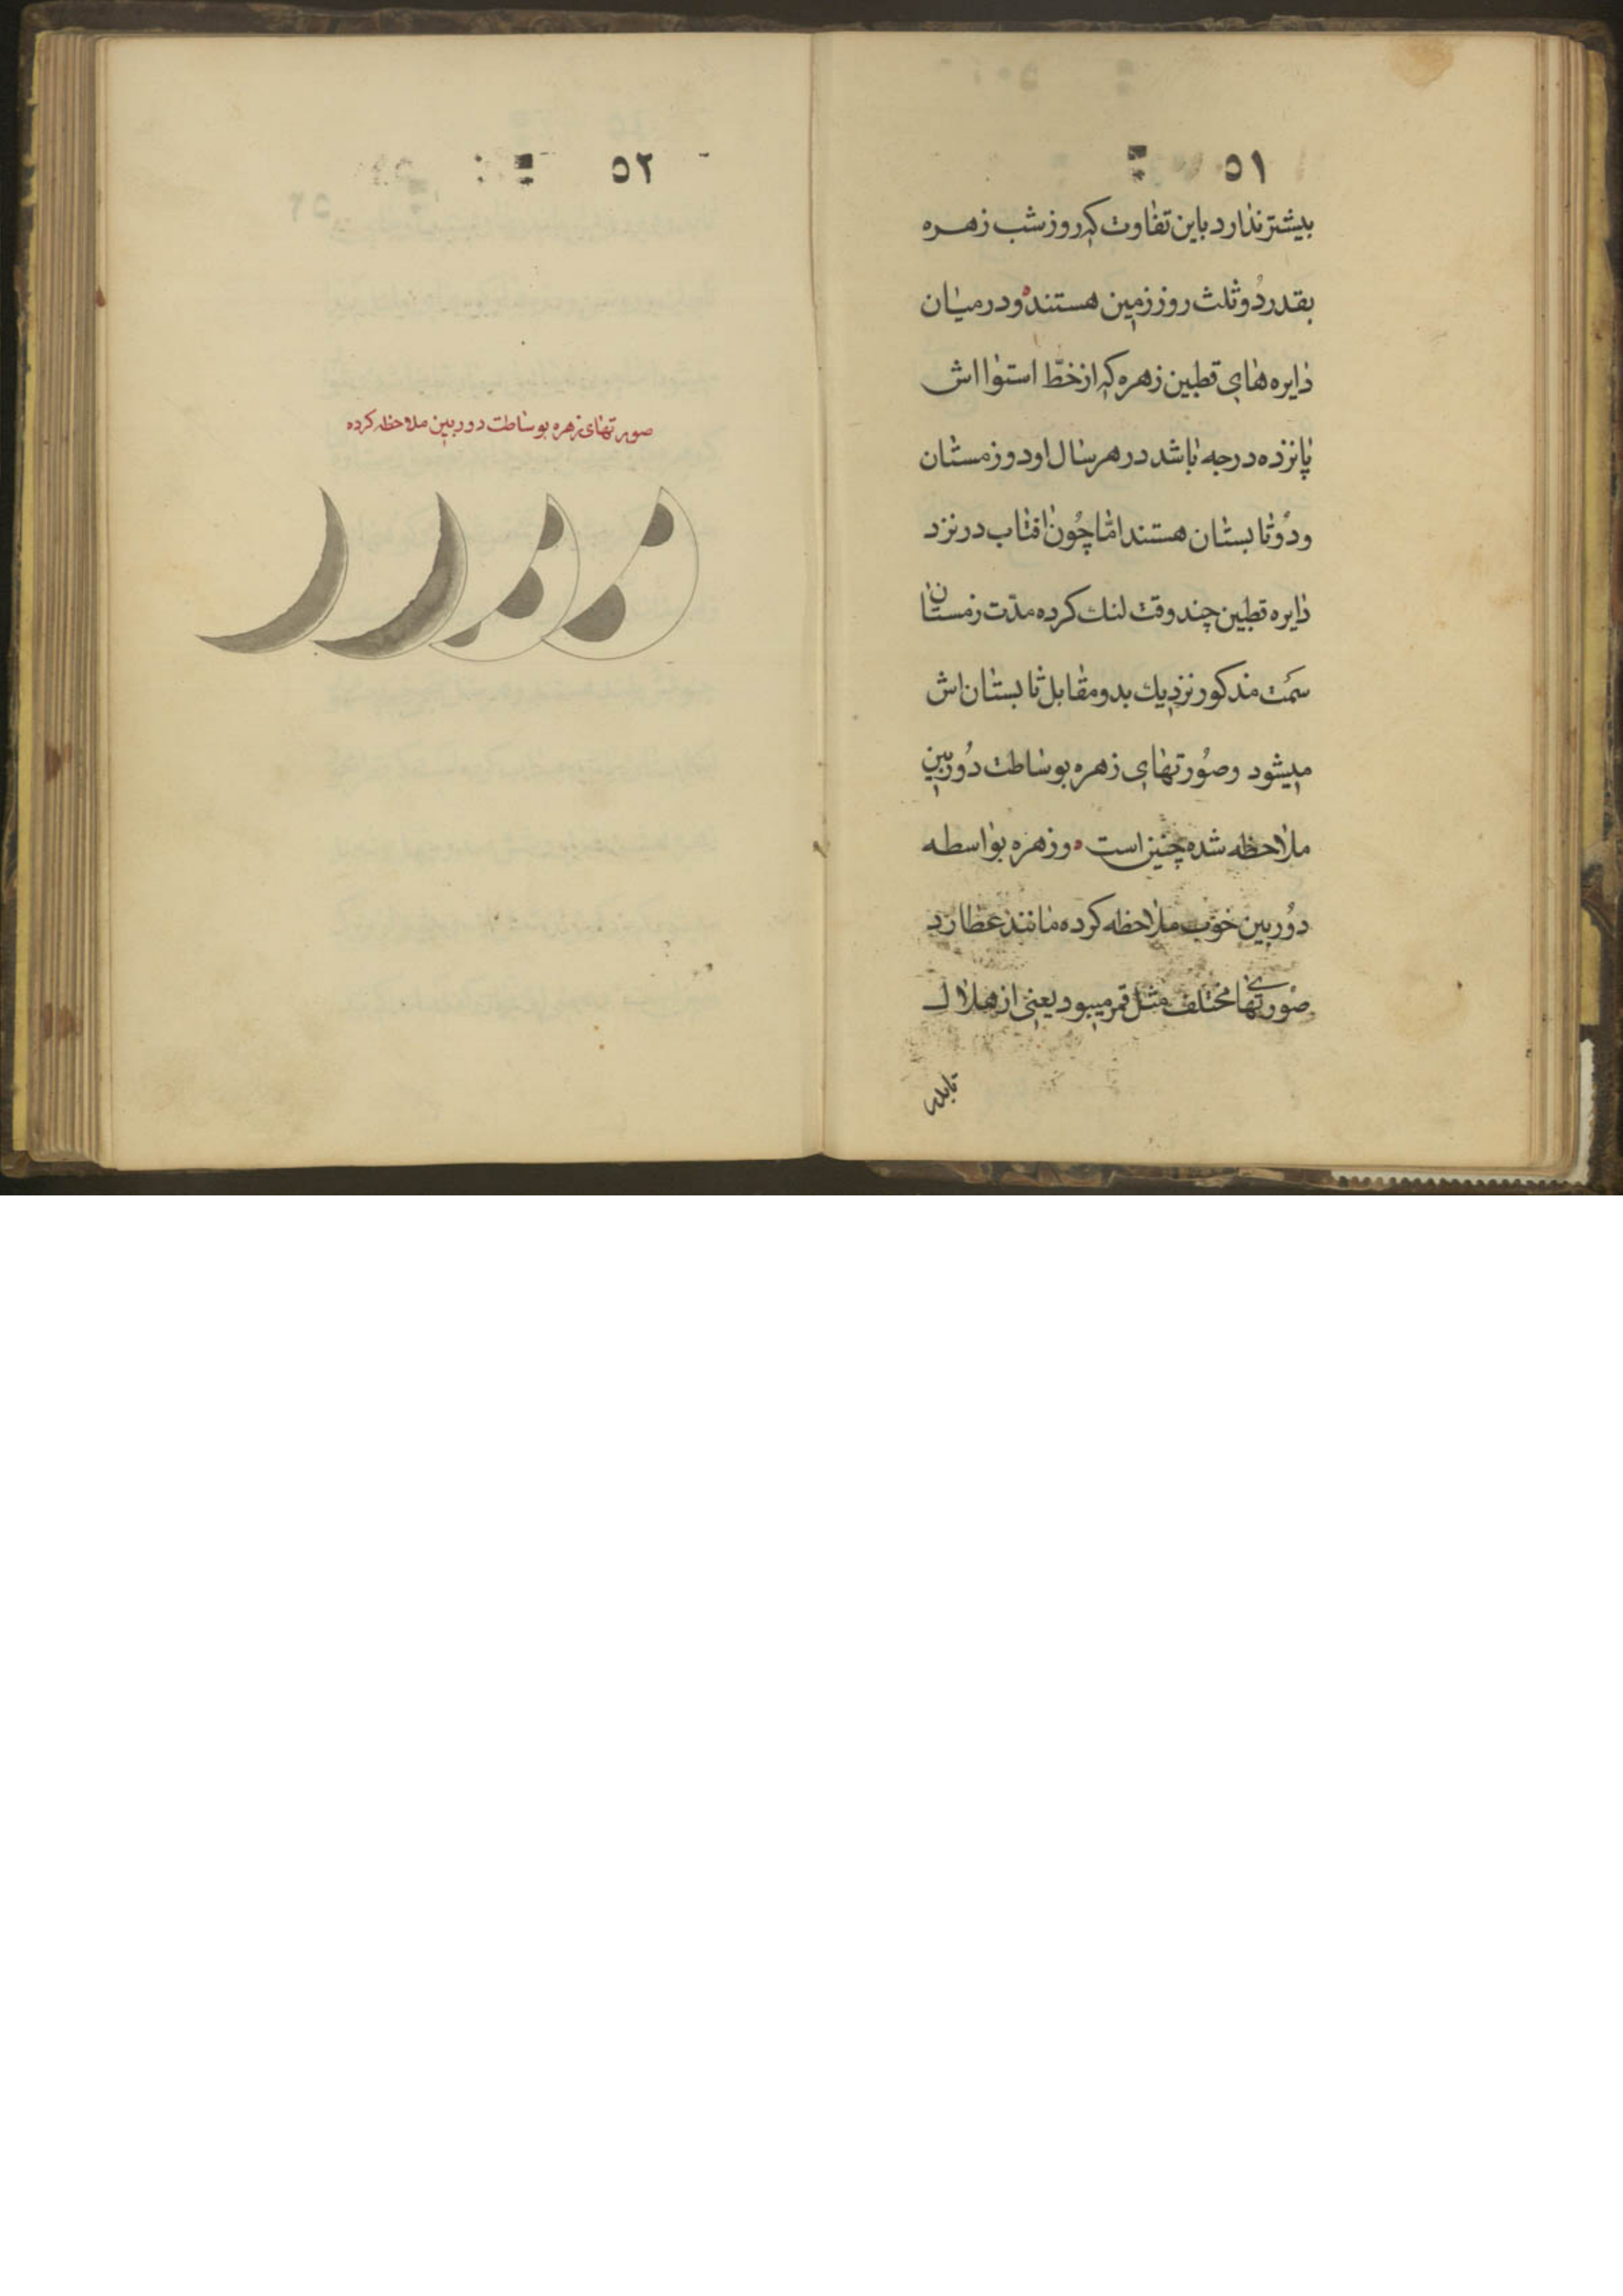 ٥١
بیشتر ندارد باین تفاوت که روز شب زهره
بقدر دُو ثلث روز زمین هستند و در میان
دایره های قطبین زهره که از خطّ استوا اش
پانزده درجه باشد در هر سال او دو زمستان
و دُو تابستان هستند امّا چُون افتاب در نزد
دایره قطبین چند وقت لنك کرده مدّت زمستان
سَمت مذکور نزدیك بدو مقابل تابستان اش
میشود و صُورتهای زهره بوساطت دُوربین
ملاحظه شده چنین است و زهره بواسطه
دُوربین خوب ملاحظه کرده مانند عطارد
صُورتهای مختلف مثل قمر میبود یعنی از هلال
٥٢
صورتهای زهره بوساطت دوربین ملاحظه کرده